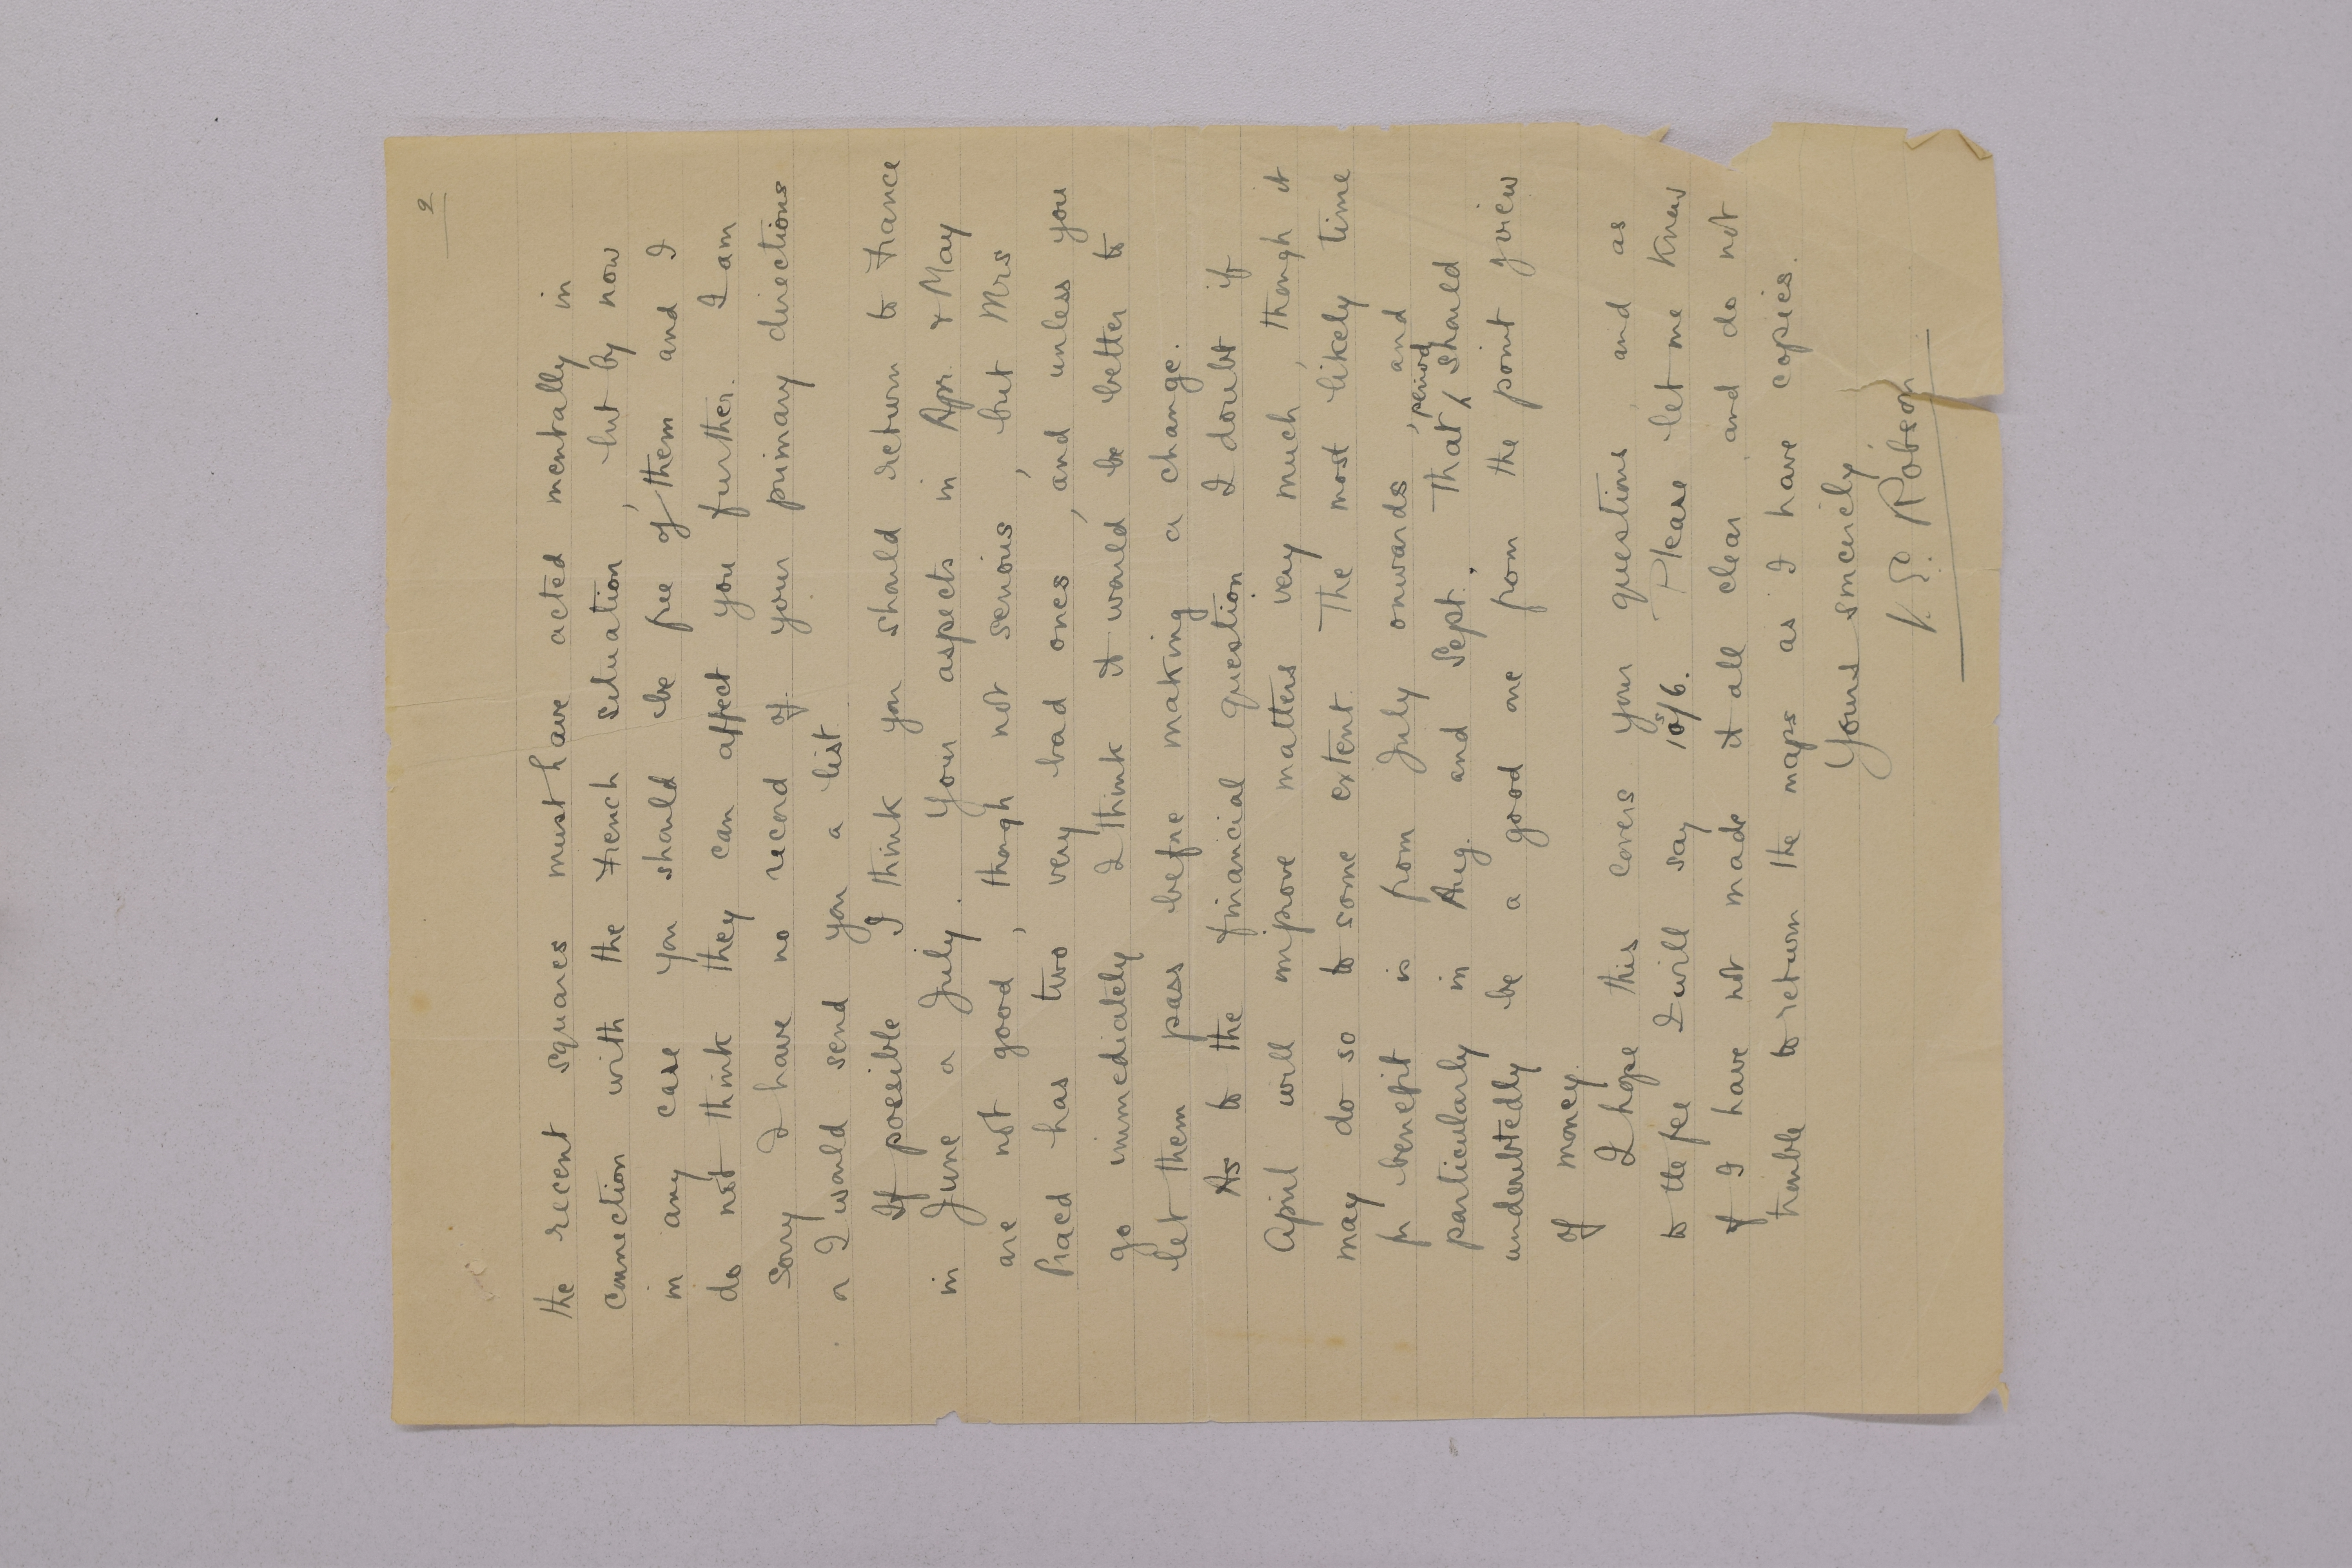 2
the recent squares must have acted mentally in
connection with the French situation, but by now
in any case you should be free of them and I
do not think they can affect you further. I am
sorry I have no record of your primary directions
or I would send you a list
If possible I think you should return to France
in June or July. Your aspects in Apr. & May
are not good, though not serious, but Mrs
has two very bad ones, and unless you
go immediately I think it would be better to
let them pass before making a change.
As to the financial question I doubt if
April will improve matters very much, though it
may do so to some extent. The most likely time
for benefit is from July onwards, and
particularly in Aug. and Sept. That period should
undoubtedly be a good one from the point of view
of money.
I hope this covers your questions and as
to the fee I will say 10s/6. Please let me know
if I have not made it all clear and do not
trouble to return the maps as I have copies.
Yours sincerely
V. E. Robson